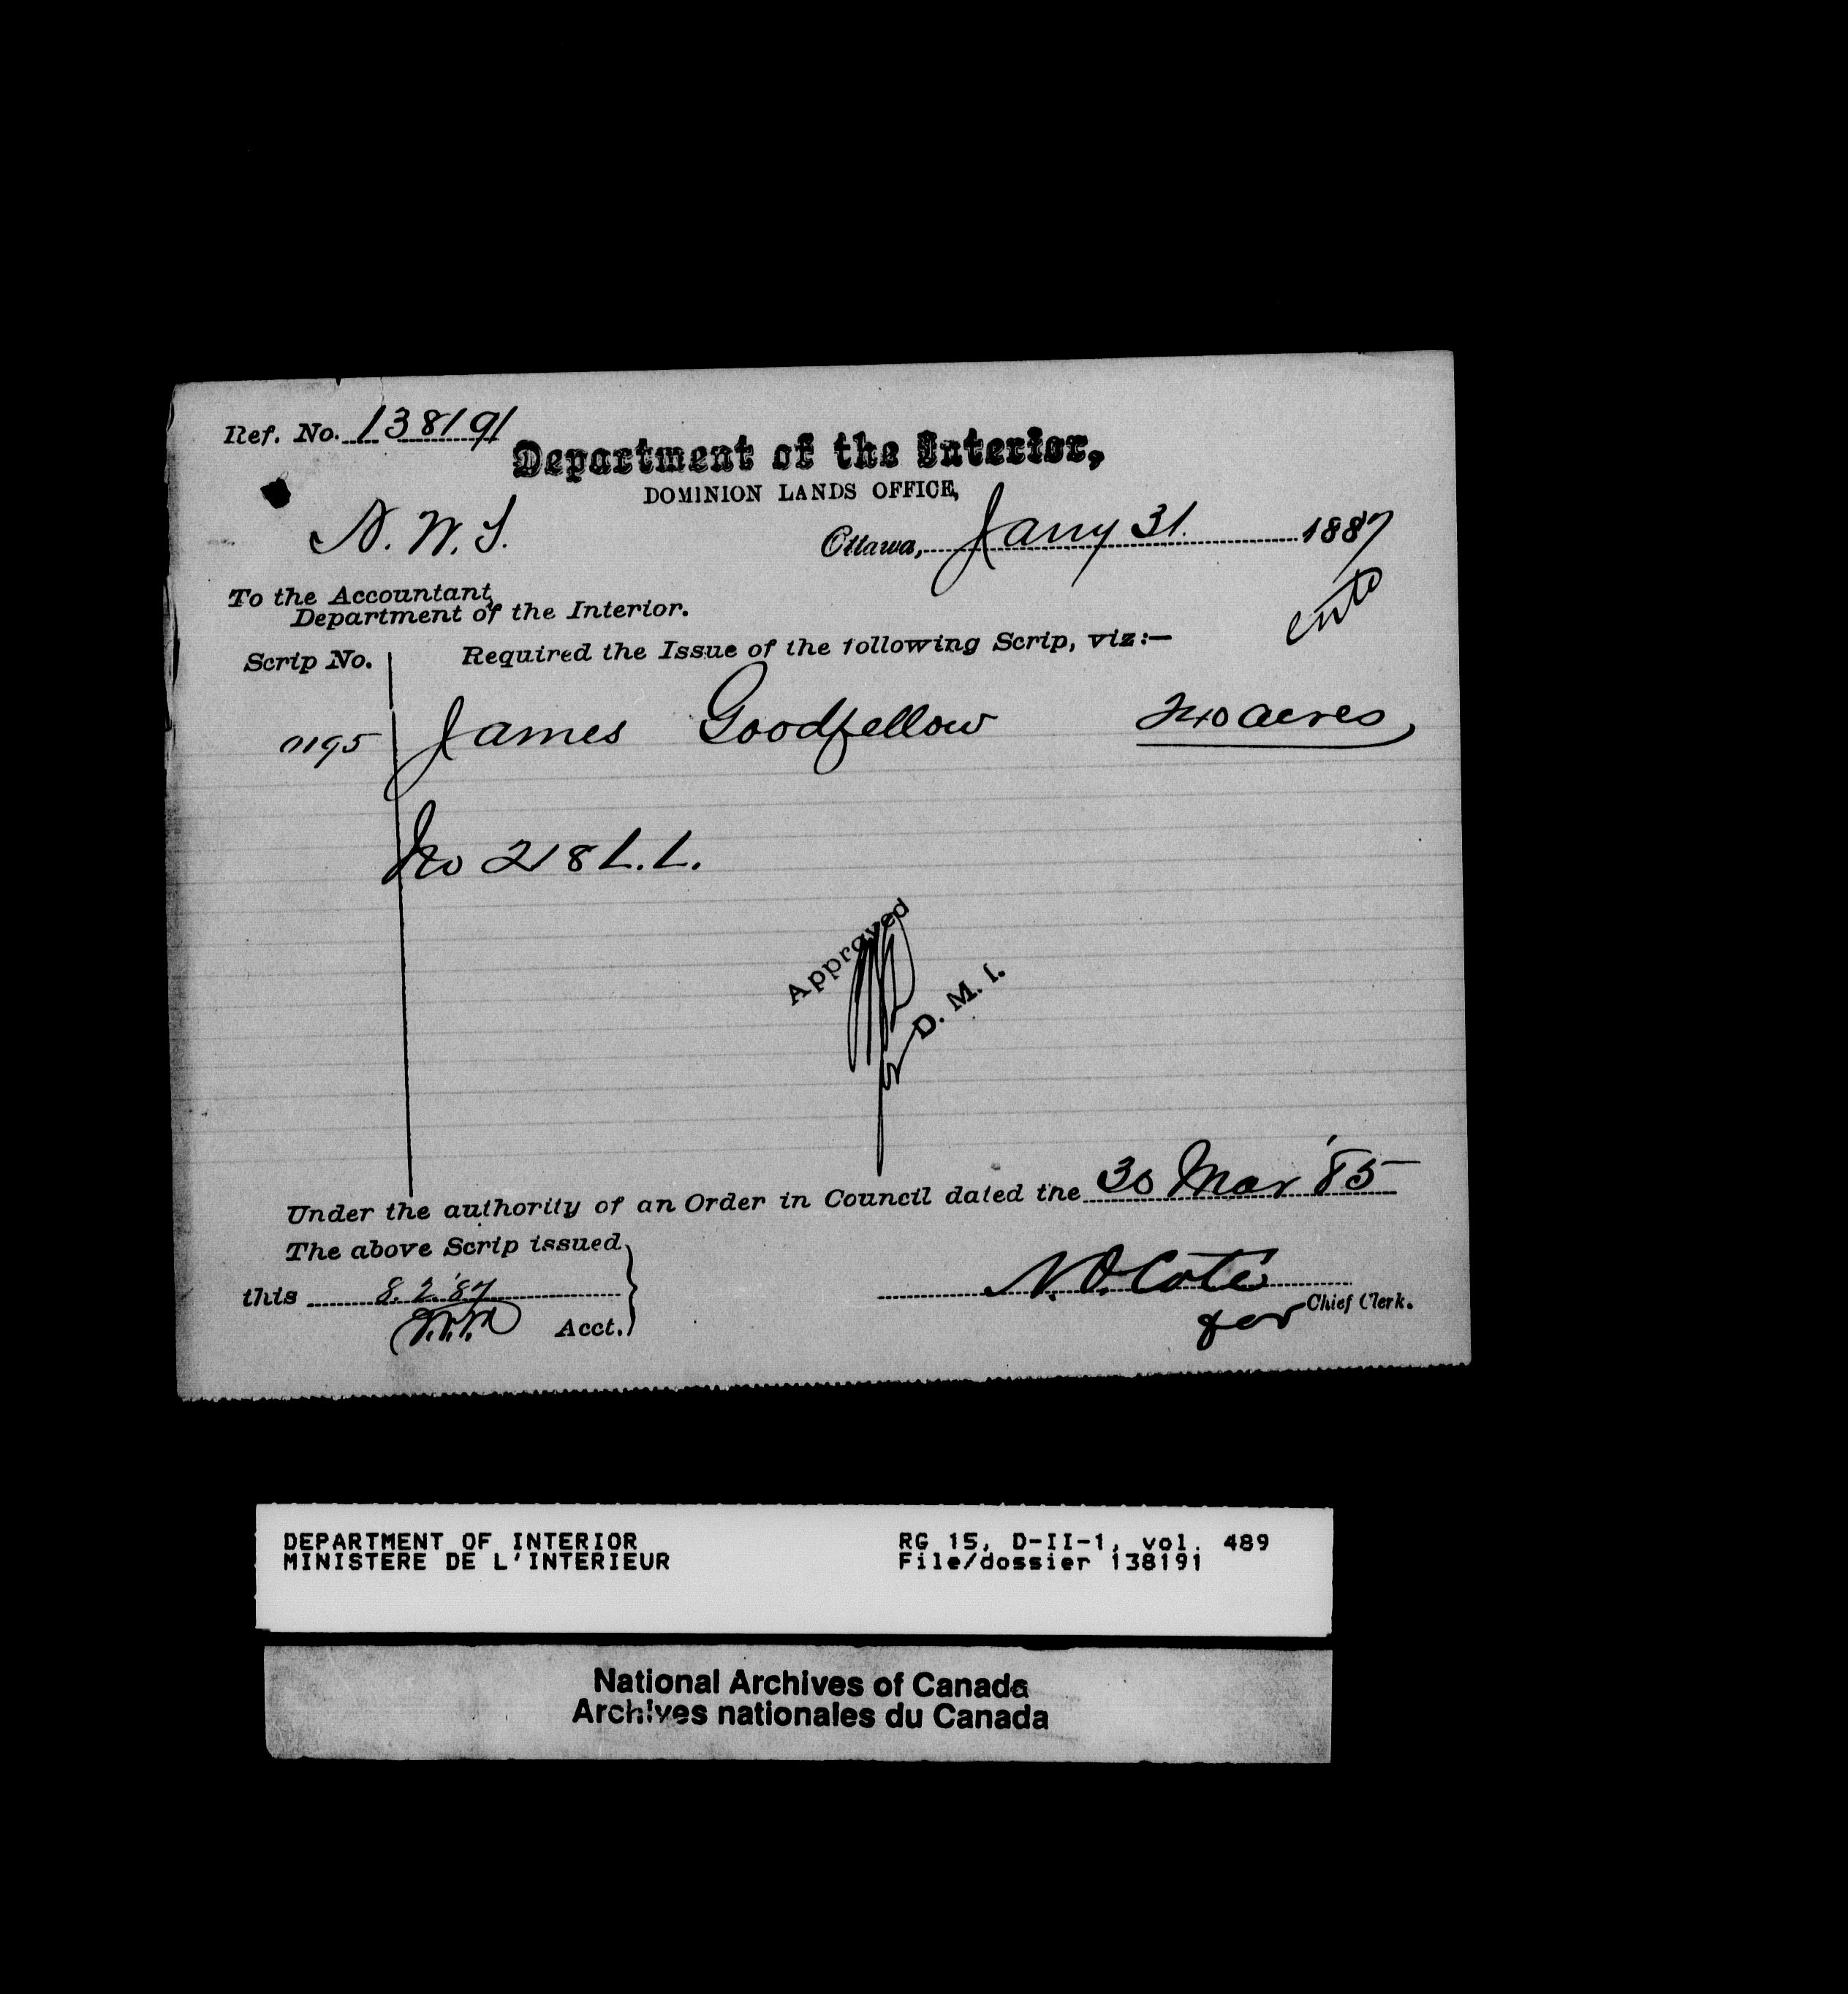 Ref. No. 138191
Department of the Interior,
DOMINION LANDS OFFICE,
N. W. S.
Ottawa, Jany 31. 1887
To the Accountant,
Department of the Interior.
Required the Issue of the following Scrip, viz:—
Scrip No.
James Goodfellow 240 acres
No 218 L.L.
Approved
for D. M. I.
Under the authority of an Order in Council dated the 30 Mar '85
The above Scrip issued
this 8.2.'87
Acct.
N.O. Coté
for Chief Clerk.
DEPARTMENT OF INTERIOR RG 15, D-II-1, vol. 489
MINISTERE DE L'INTERIEUR File/dossier 138191
National Archives of Canada
Archives nationales du Canada